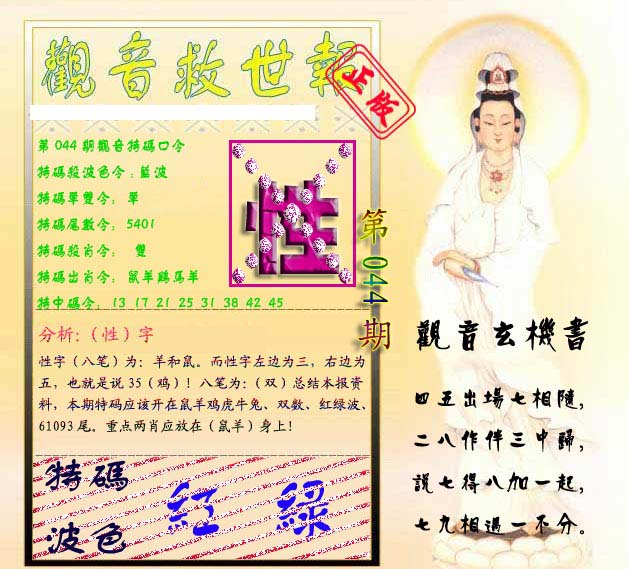 觀音救世報
正版
第 044 期觀音特碼口令
特碼殺波色令：藍波
特碼單雙令： 單
特碼尾數令： 5401
特碼殺肖令： 雙
特碼出肖令： 鼠羊鷄馬羊
特中碼令： 13 17 21 25 31 38 42 45
性
第 044 期
分析:（性）字
性字（八笔）为：羊和鼠。而性字左边为三，右边为
五，也就是说 35（鸡）！八笔为：（双）总结本报资
料，本期特码应该开在鼠羊鸡虎牛兔、双数、红绿波、
61093 尾。重点两肖应放在（鼠羊）身上！
特碼
波色
紅 綠
觀音玄機書
四五出場七相隨，
二八作伴三中歸，
說七得八加一起，
七九相遇一不分。